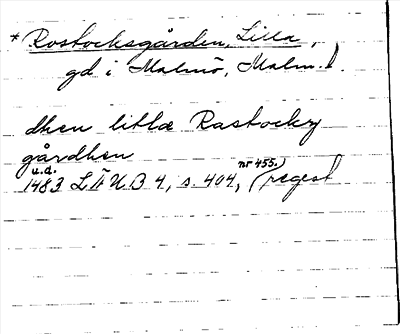 * Rostocksgården, Lilla,
gd i Malmö, Malm.
dhen litlæ Rastocky
gårdhen
u.d. nr 455.)
1483 LÄUB 4, s. 404, (regest